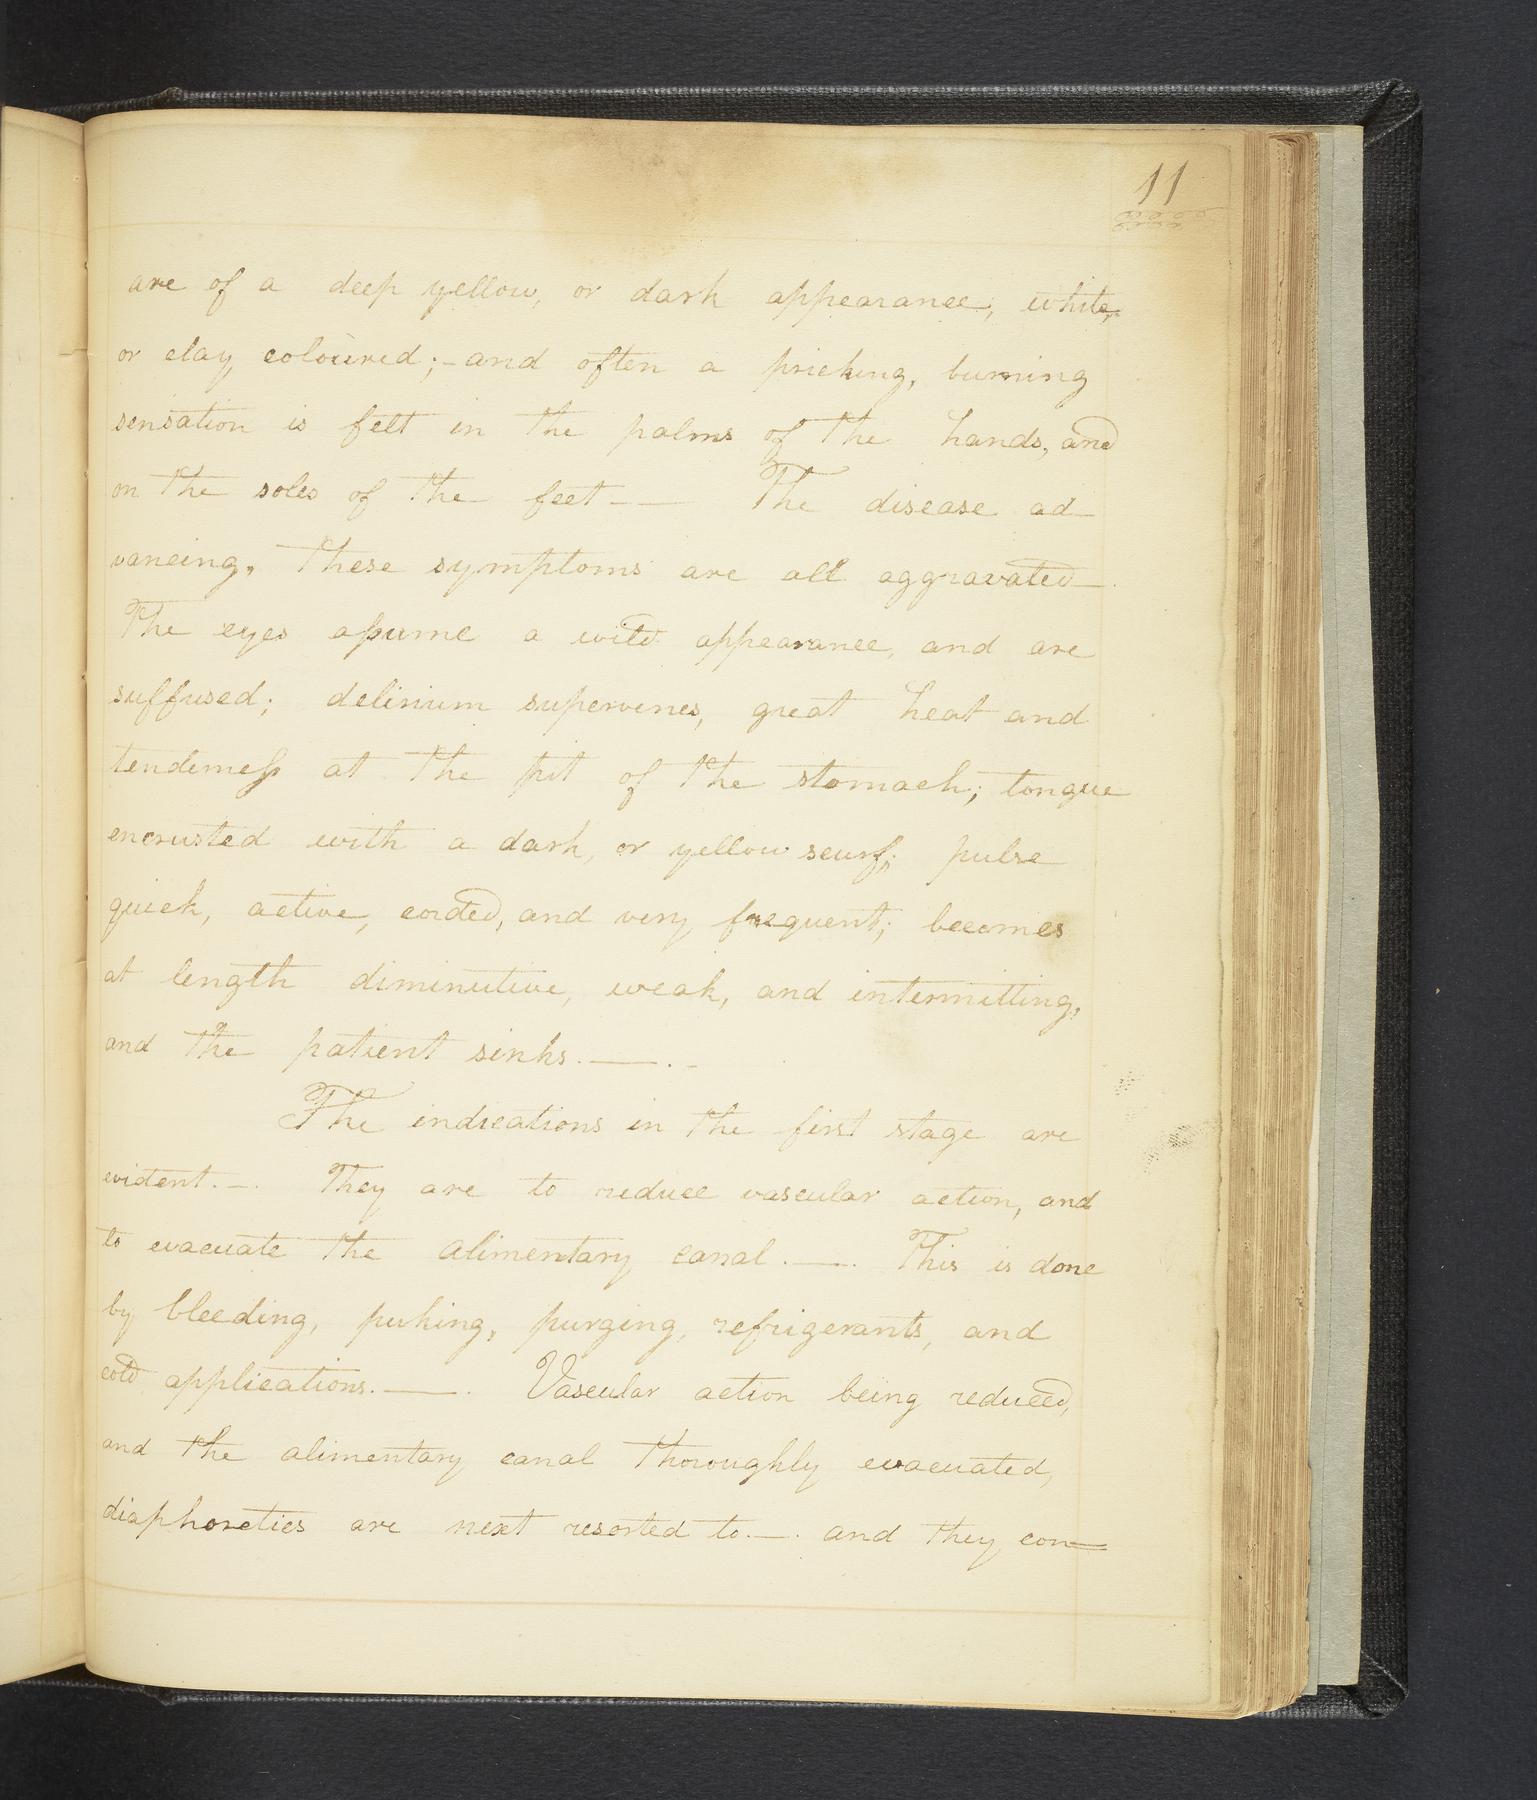 11
are of a deep yellow, or dark appearance, white,
or clay coloured; - and often a pricking, burning
sensation is felt in the palms of the hands, and
on the soles of the feet — — The disease ad-
vancing, these symptoms are all aggravated—
The eyes assume a wild appearance, and are
suffused; delirium supervenes, great heat and
tenderness at the pit of the stomach; tongue
encrusted with a dark, or yellow scurf; pulse
quick, active, corded, and very frequent; becomes
at length diminutive, weak, and intermitting,
and the patient sinks. — . -
The indications in the first stage are
evident. —. They are to reduce vascular action, and
to evacuate the alimentary canal. —. This is done
by bleeding, puking, purging, refrigerants, and
cold applications. —. Vascular action being reduced,
and the alimentary canal thoroughly evacuated,
diaphoretics are next resorted to. —. and they con=